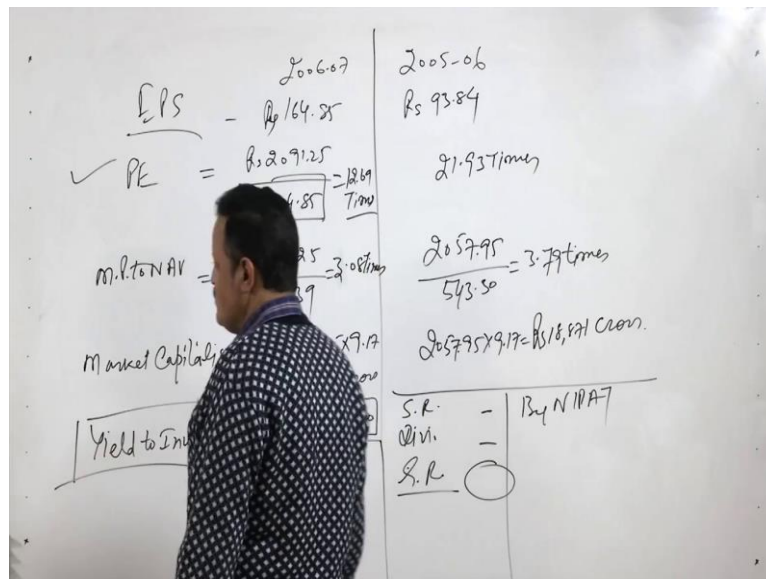 2006.07
EPS - Rs 164.85
✓ PE = Rs 2091.25
4.85 = 12.69 Times
M.P. to NAV = 25
39 = 3.08 times
Market Capitali × 9.17
ore
Yield to Inv
2005-06
Rs 93.84
21.93 Times
2057.95
543.50 = 3.79 times
2057.95 × 9.17 = Rs 18,871 Crore.
S.R. - By N/PAT
Divi. -
S.R